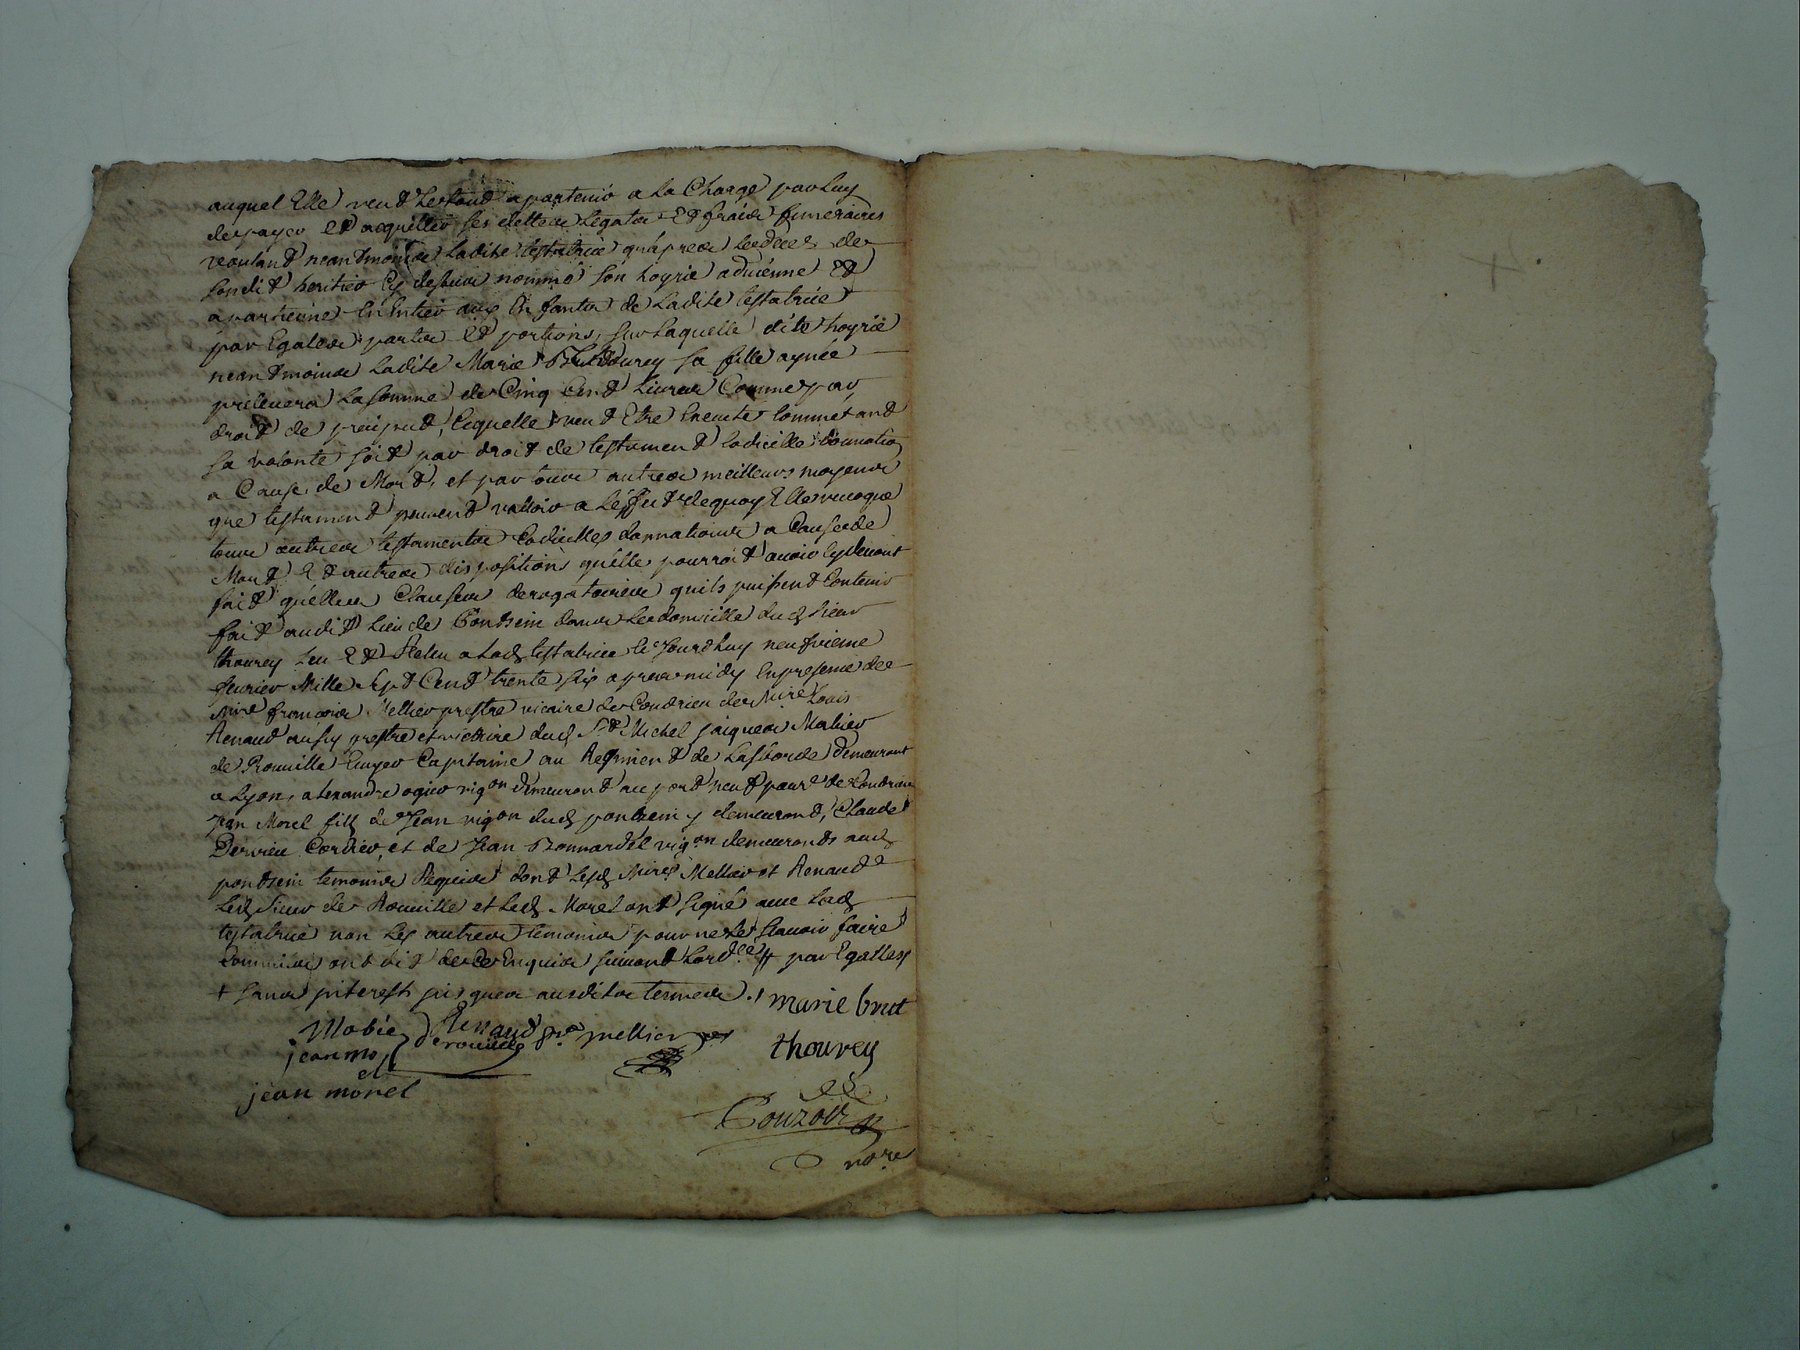 auquel Elle veu d Lestout apartenir a la Charge par luy
de payer et acquitter ses dettes Legats Et fraix funeraires
voulant neantmoins Ladite testatrice qu'apres Ledeces de
sondit heritier Cy dessus nommé son hoyrie advienne Et
apartienne En Entier aux Enfants de Ladite testatrice
par Egales parts Et portions, sur Laquelle dite hoyrie
neantmoins Ladite Marie Thourey sa fille aynée
prelevera La somme de Cinq Cent Livres Comme par
droit de preciput, Lequelle veut Etre Executé Comme tand
sa volonté soit par droit de testament Codicille donnation
a Cause de Mort, et par tous autres meilleurs moyens
que testament peuvent valloir a L'effet de quoy Elle revoque
tous autres testaments Codicilles donnations a Cause de
Mort Et autres dispositions qu'elle pourroit avoir Cy devant
fait quelles Clauses derogatoires quils puissent Contenir
fait audit Lieu de Pontsein dans Le domicille dud sieur
thourey Leu Et Releu a Lad testatrice le Jourdhuy neufvieme
fevrier Mille Sept Cent trente six apres midy En presence de
Mire francois Mellier prestre vicaire de Condrieu de Mire Louis
Renaud aussy prestre et vicaire dud St Michel Jaiques Mabiez
de Rouville Ecuyer Capitaine au Regiment de Lasborde demeurant
a Lyon, alexandre ogier vigon demeurant au port neud par de Condrieu
Jean Morel fils de Jean vigon dud pontsein y demeurant, Claude
Dervieu Cordier, et de Jean Bonnardel vigon demeurants aud
pontsein temoins Requis dont Lesd Mires Mellier et Renaud
Led Sieur de Rouville et Led Morel ont signé avec Lad
testatrice non Les autres temoins pour ne Le Scavoir faire
Comme ils ont dit de ce Enquis suivant Lordce # par Egalles
+ sans interest jusques ausdits termes ./ marie brut
Mabiez Renaud pre mellier pre
jean mo derouville thourey
jean morel
Gouzon
nore